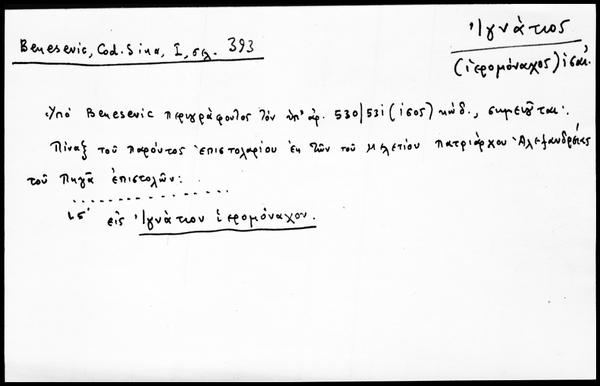 Benesevic, Cod. Sina, I, σελ. 393
Ἰγνάτιος
(ἱερομόναχος)
Ὑπὸ Benesevic περιγράφοντος τὸν ὑπ' ἀρ. 530/531 (ις05) κώδ., σημειοῦται:
Πίναξ τοῦ παρόντος ἐπιστολαρίου ἐκ τῶν τοῦ Μελετίου πατριάρχου Ἀλεξανδρείας
τοῦ Πηγᾶ ἐπιστολῶν:
ις' εἰς Ἰγνάτιον ἱερομόναχον.